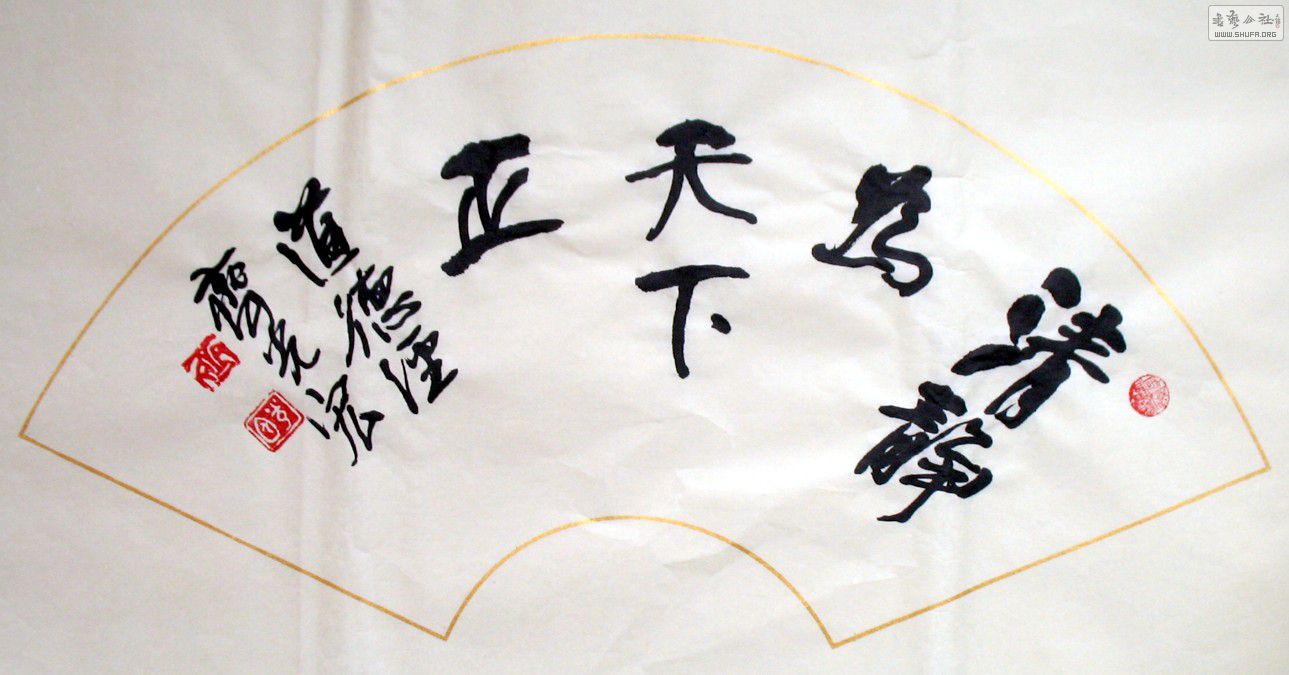 清静
为
天下
正
道德经
书艺公社
WWW.SHUFA.ORG